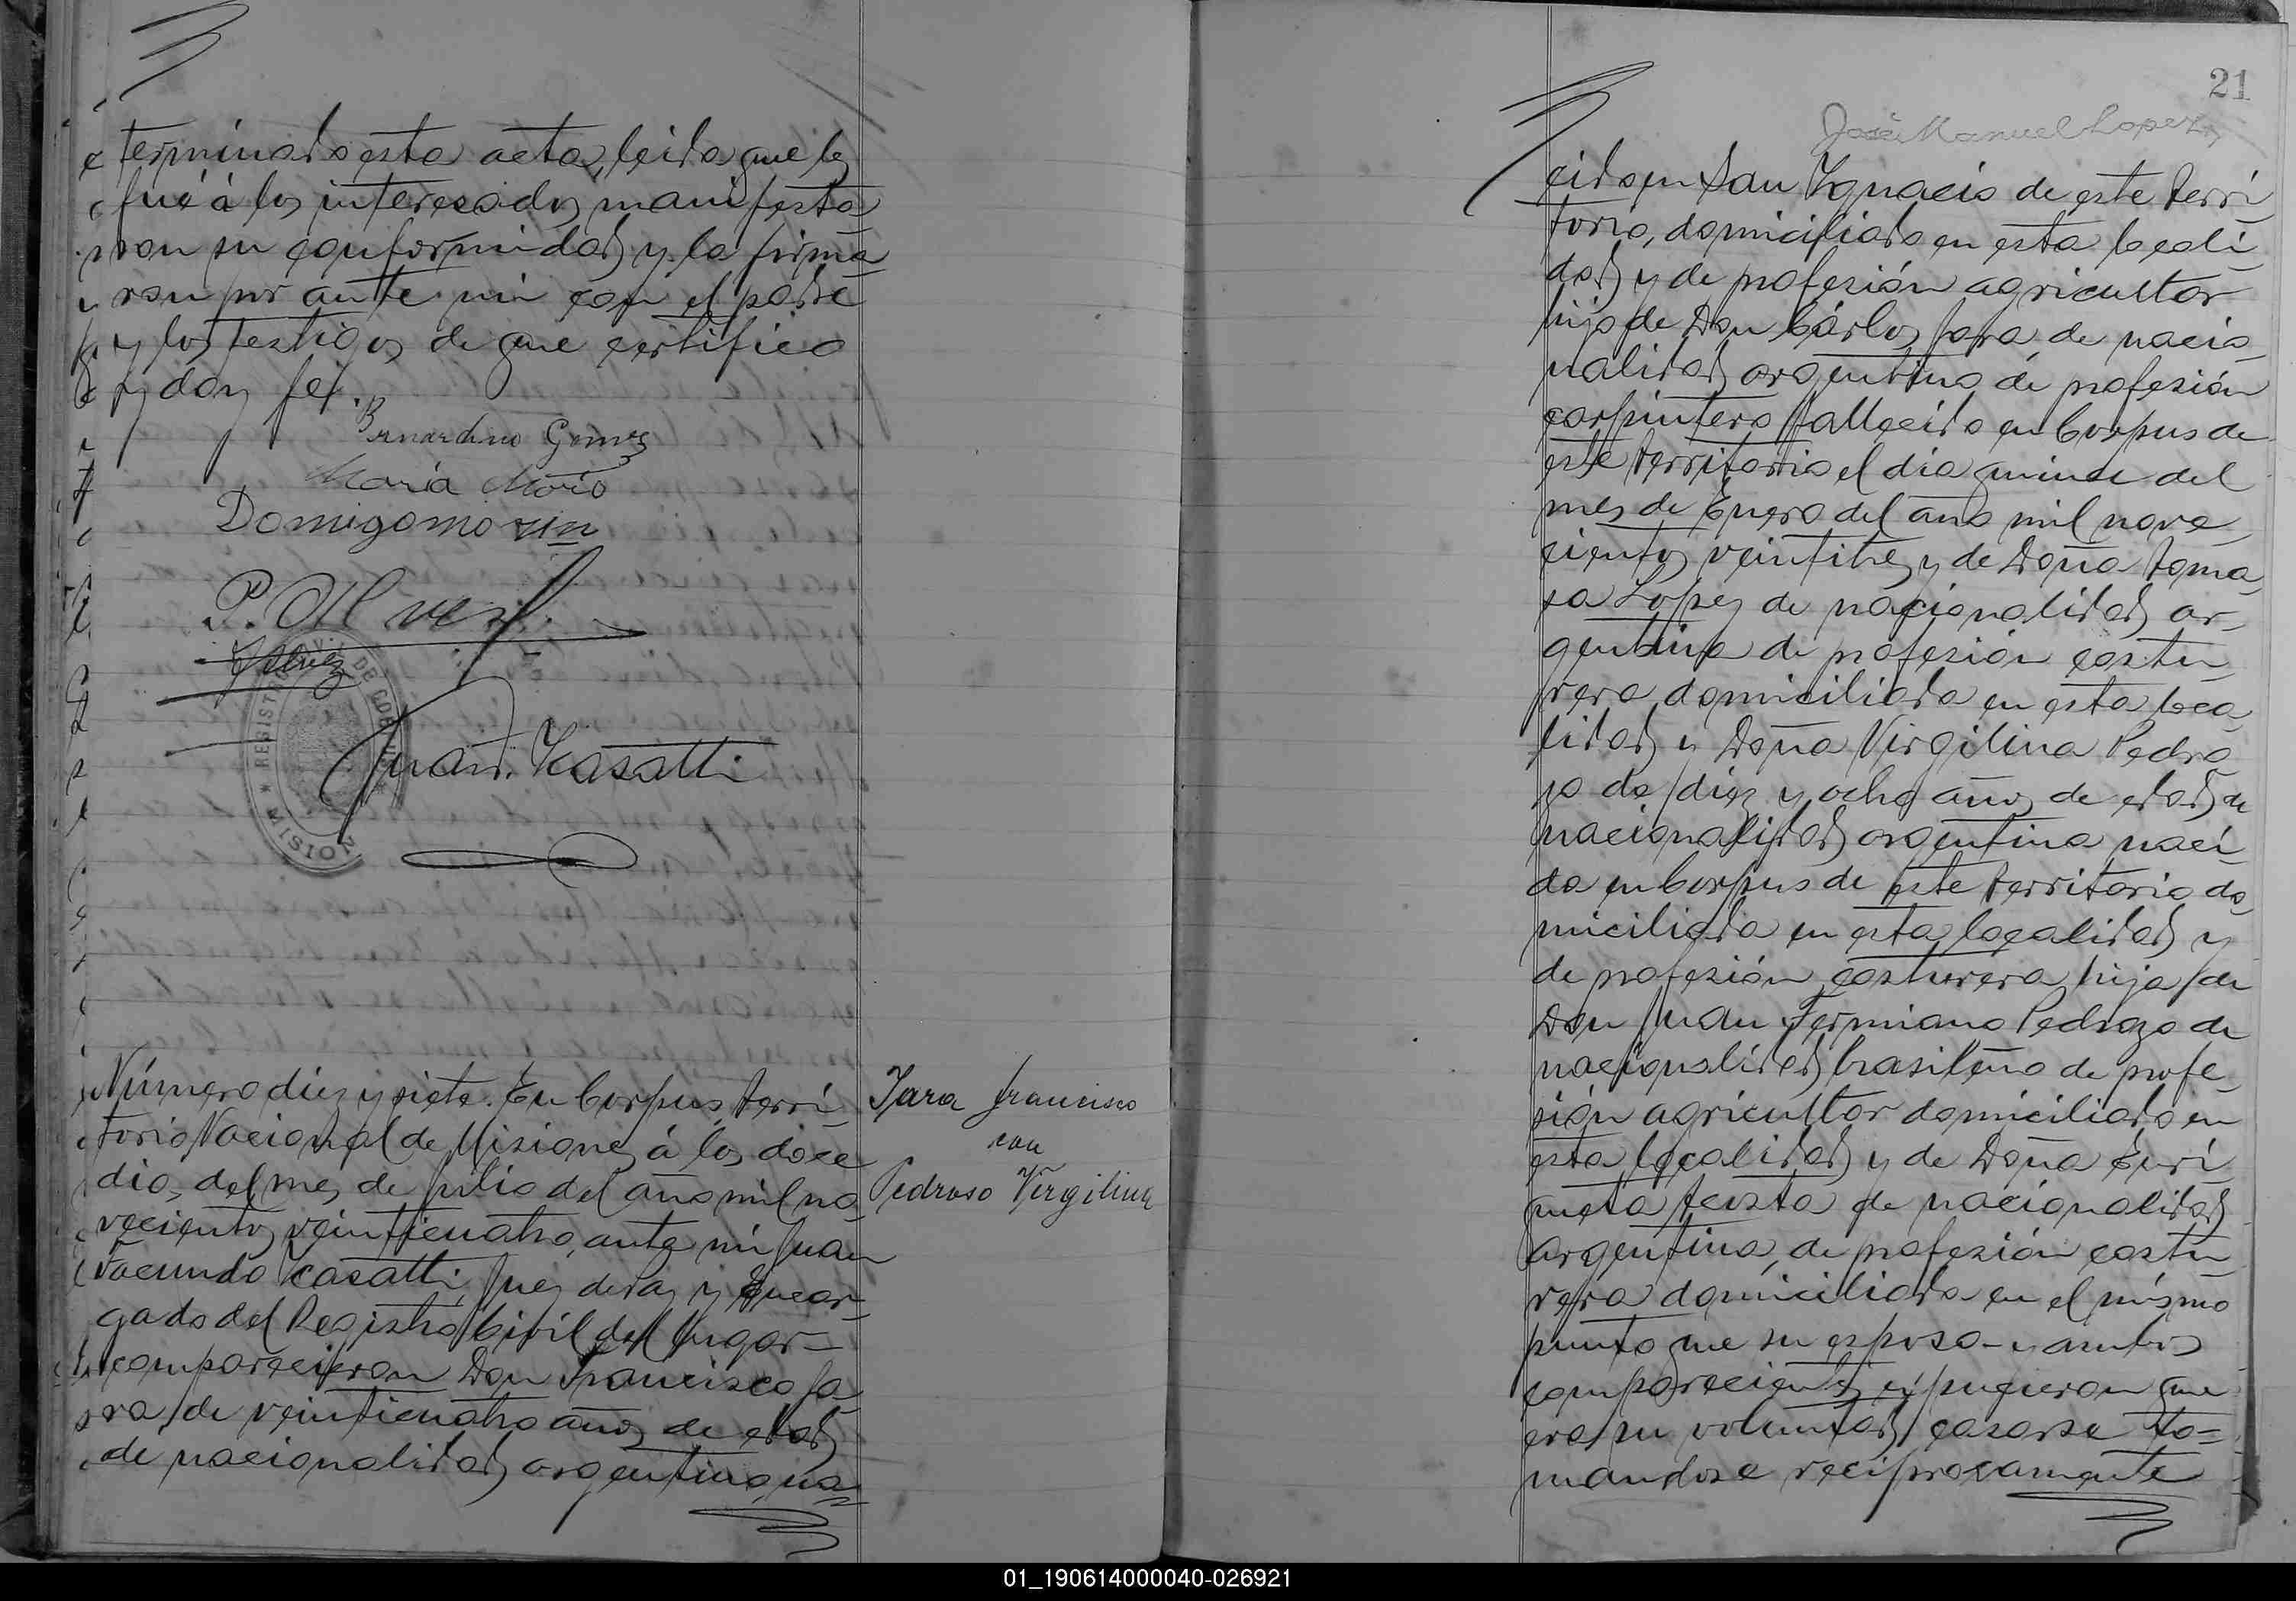 terminada esta acta, leida que les
fué á los interesados manifesta
ron su conformidad y la firma
ron por ante mi con el padre
y los testigos de que certifico
y doy fé.
Bernardino Gomez
Maria Morio
Domigomo
P. Alvez
Juan F. Casatti
REGISTRO CIVIL DE CORPUS
MISIONES
Número diez y siete. En Corpus, Terri
torio Nacional de Misiones á los doce
dias, del mes de Julio del año mil no
vecientos veinticuatro, ante mi Juan
Facundo Casatti, Juez de Paz y Encar
gado del Registro Civil del lugar
comparecieron Don Francisco Ja
ra, de veinticuatro años de edad
de nacionalidad argentino, na
Jara Francisco
con
Pedroso Virgilina
21
José Manuel Lopez
cido en San Ygnacio de este Terri
torio, domiciliado en esta locali
dad y de profesión agricultor
hijo de Don Cárlos Jara, de nacio
nalidad argentino, de profesión
carpintero, fallecido en Corpus de
este Territorio el dia quince del
mes de Enero del año mil nove
cientos veintitres y de Doña Toma
sa Lopez de nacionalidad ar
gentina de profesión costu
rera domiciliada en esta loca
lidad y Doña Virgilina Pedro
zo de diez y ocho años de edad de
nacionalidad argentina naci
da en Corpus de este Territorio do
miciliada en esta localidad y
de profesión costurera, hija de
Don Juan Fermiano Pedrozo de
nacionalidad brasileño de profe
sión agricultor domiciliado en
esta localidad y de Doña Enri
queta Acosta de nacionalidad
argentina, de profesión costu
rera domiciliada en el mismo
punto que su esposo y ambos
comparecientes expusieron que
era su voluntad casarse to=
mandose reciprocamente
01_190614000040-026921